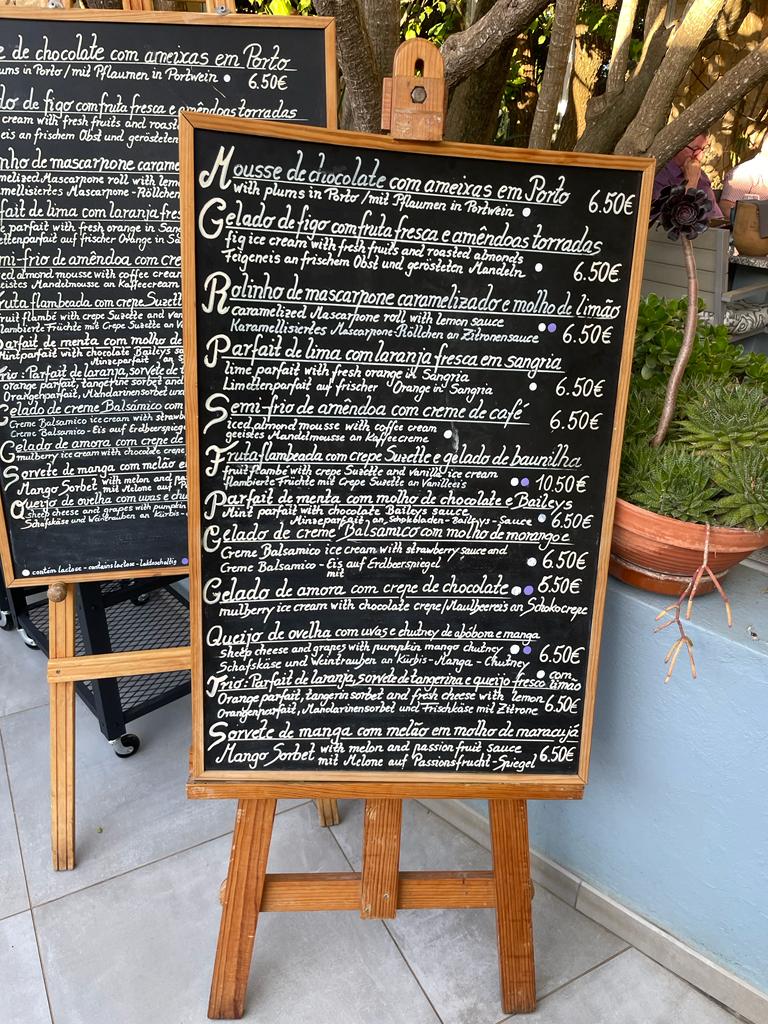 e de chocolate com ameixas em Porto
ums in Porto/mit Pflaumen in Portwein 6.50€
do de figo com fruta fresca e amêndoas torradas
cream with fresh fruits and roast
eis an frischem Obst und gerösteten
nho de mascarpone carame
melized Mascarpone roll with lem
mellisiertes Mascarpone-Röllchen
fait de lima com laranja fres
parfait with fresh orange in San
ettenparfait auf frischer Orange in Sa
mi-frio de amêndoa com cre
iced almond mousse with coffee cream
geistes Mandelmousse an Kaffeecreme
ruta flambeada com crepe Suzett
fruit flambé with crepe Suzette and Van
lambierte Früchte mit Crepe Suzette an V
arfait de menta com molho de
Mint parfait with chocolate Baileys s
Minzeparfait an S
rio: Parfait de laranja, sorvete de t
orange parfait, tangerine sorbet and
Orangenparfait, Mandarinensorbet und
Gelado de creme Balsámico com
Creme Balsamico ice cream with strawb
Creme Balsamico-Eis auf Erdbeerspiegel
Gelado de amora com crepe de
mulberry ice cream with chocolate crepe
Sorvete de manga com melão em
Mango Sorbet with melon and pas
Queijo de ovelha com uvas e chu
sheep cheese and grapes with pumpkin
Schafskäse und Weintrauben an Kürbis-
contém lactose - contains lactose - laktosehaltig
Mousse de chocolate com ameixas em Porto
with plums in Porto/mit Pflaumen in Portwein 6.50€
Gelado de figo com fruta fresca e amêndoas torradas
fig ice cream with fresh fruits and roasted almonds
Feigeneis an frischem Obst und gerösteten Mandeln 6.50€
Rolinho de mascarpone caramelizado e molho de limão
caramelized Mascarpone roll with lemon sauce
Karamellisiertes Mascarpone-Röllchen an Zitronensauce 6.50€
Parfait de lima com laranja fresca em sangria
lime parfait with fresh orange in Sangria
Limettenparfait auf frischer Orange in Sangria 6.50€
Semi-frio de amêndoa com creme de café 6.50€
iced almond mousse with coffee cream
geistes Mandelmousse an Kaffeecreme
Fruta flambeada com crepe Suzette e gelado de baunilha
fruit flambé with crepe Suzette and Vanilla ice cream
flambierte Früchte mit Crepe Suzette an Vanilleeis 10.50€
Parfait de menta com molho de chocolate e Baileys
Mint parfait with chocolate Baileys sauce
Minzeparfait an Schokoladen-Baileys-Sauce 6.50€
Gelado de creme Balsamico com molho de morango e
Creme Balsamico ice cream with strawberry sauce and
Creme Balsamico-Eis auf Erdbeerspiegel 6.50€
mit
Gelado de amora com crepe de chocolate 6.50€
mulberry ice cream with chocolate crepe/Maulbeereis an Schokocrepe
Queijo de ovelha com uvas e chutney de abóbora e manga
sheep cheese and grapes with pumpkin mango chutney
Schafskäse und Weintrauben an Kürbis-Manga-Chutney 6.50€
Frio: Parfait de laranja, sorvete de tangerina e queijo fresco com limão
Orange parfait, tangerin sorbet and fresh cheese with lemon
Orangenparfait, Mandarinensorbet und Frischkäse mit Zitrone 6.50€
Sorvete de manga com melão em molho de maracujá
Mango Sorbet with melon and passion fruit sauce 6.50€
mit Melone auf Passionsfrucht-Spiegel